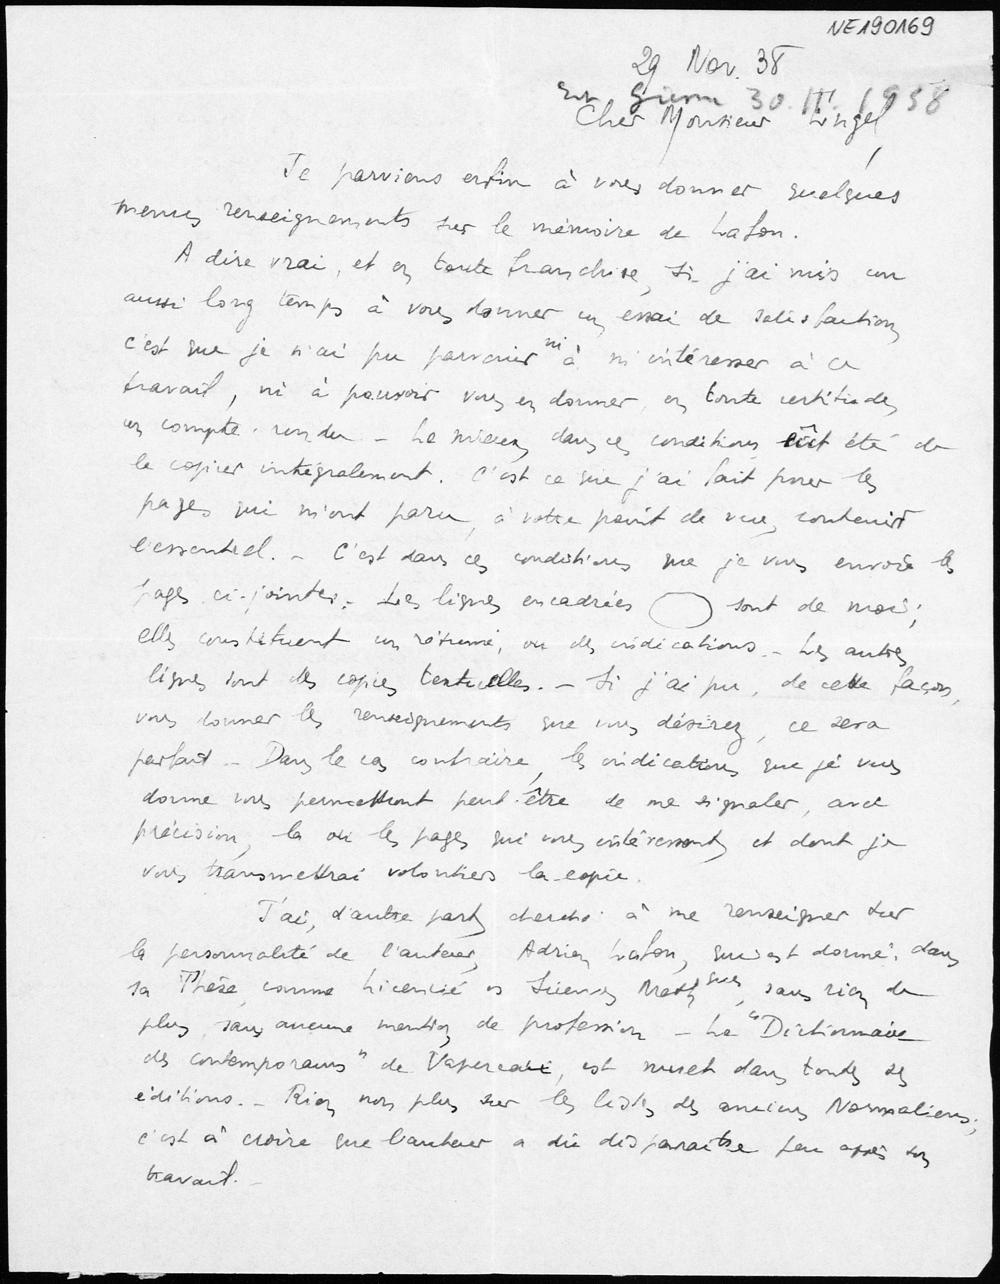 NE190169
29 Nov. 38
30. III. 1958
Cher Monsieur
Je parviens enfin à vous donner quelques
menus renseignements sur le mémoire de Lafon.
A dire vrai, et en toute franchise, si j'ai mis un
aussi long temps à vous donner un essai de satisfaction,
c'est que je n'ai pu parvenir ni à m'intéresser à ce
travail, ni à pouvoir vous en donner, en toute certitude,
un compte-rendu - Le mieux, dans ces conditions eût été de
le copier intégralement. C'est ce que j'ai fait pour les
pages qui m'ont paru, à votre point de vue, contenir
l'essentiel. - C'est dans ces conditions que je vous envoie les
pages ci-jointes. - Les lignes encadrées sont de moi ;
elles constituent un résumé, ou des indications. - Les autres
lignes sont des copies textuelles. - Si j'ai pu, de cette façon,
vous donner les renseignements que vous désirez, ce sera
parfait - Dans le cas contraire, les indications que je vous
donne vous permettront peut-être de me signaler, avec
précision, la ou les pages qui vous intéressent, et dont je
vous transmettrai volontiers la copie.
J'ai, d'autre part, cherché à me renseigner sur
la personnalité de l'auteur, Adrien Lafon, qui est donné, dans
sa Thèse, comme Licencié es Sciences Math ques, sans rien de
plus, sans aucune mention de profession - Le "Dictionnaire
des contemporains" de Vapereau, est muet dans toutes ses
éditions. - Rien non plus sur les listes des anciens Normaliens ;
c'est à croire que l'auteur a dû disparaître peu après son
travail. -